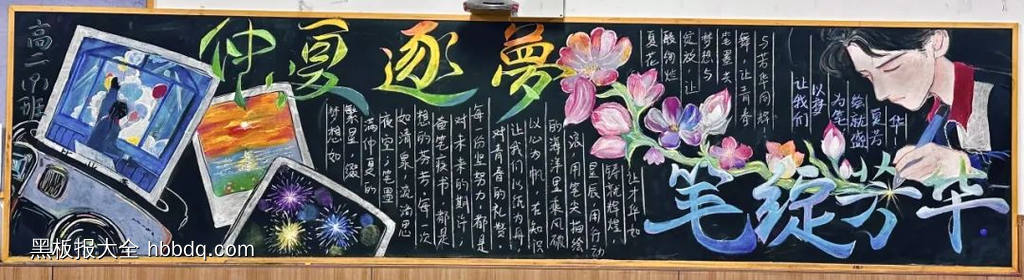 高二
班
仲夏逐夢
梦想如
繁星,缀
满仲夏的
夜空;笔墨
如清泉,流淌思
想的芬芳。每一次
奋笔疾书,都是
对未来的期许,
每一份坚努力,都是
对青春的礼赞。
让我们以纸为舟,
以心为帆,在知识
的海洋里乘风破
浪,用笔尖描绘
星辰,用行动
铸就辉煌,
让才华如
夏花
般绚烂
绽放,让
梦想与
笔墨共
舞,让青春
与芳华同辉。
让我们
以梦
为笔,
绘就盛
夏芳
华
笔绽芳华
黑板报大全 hbbdq.com